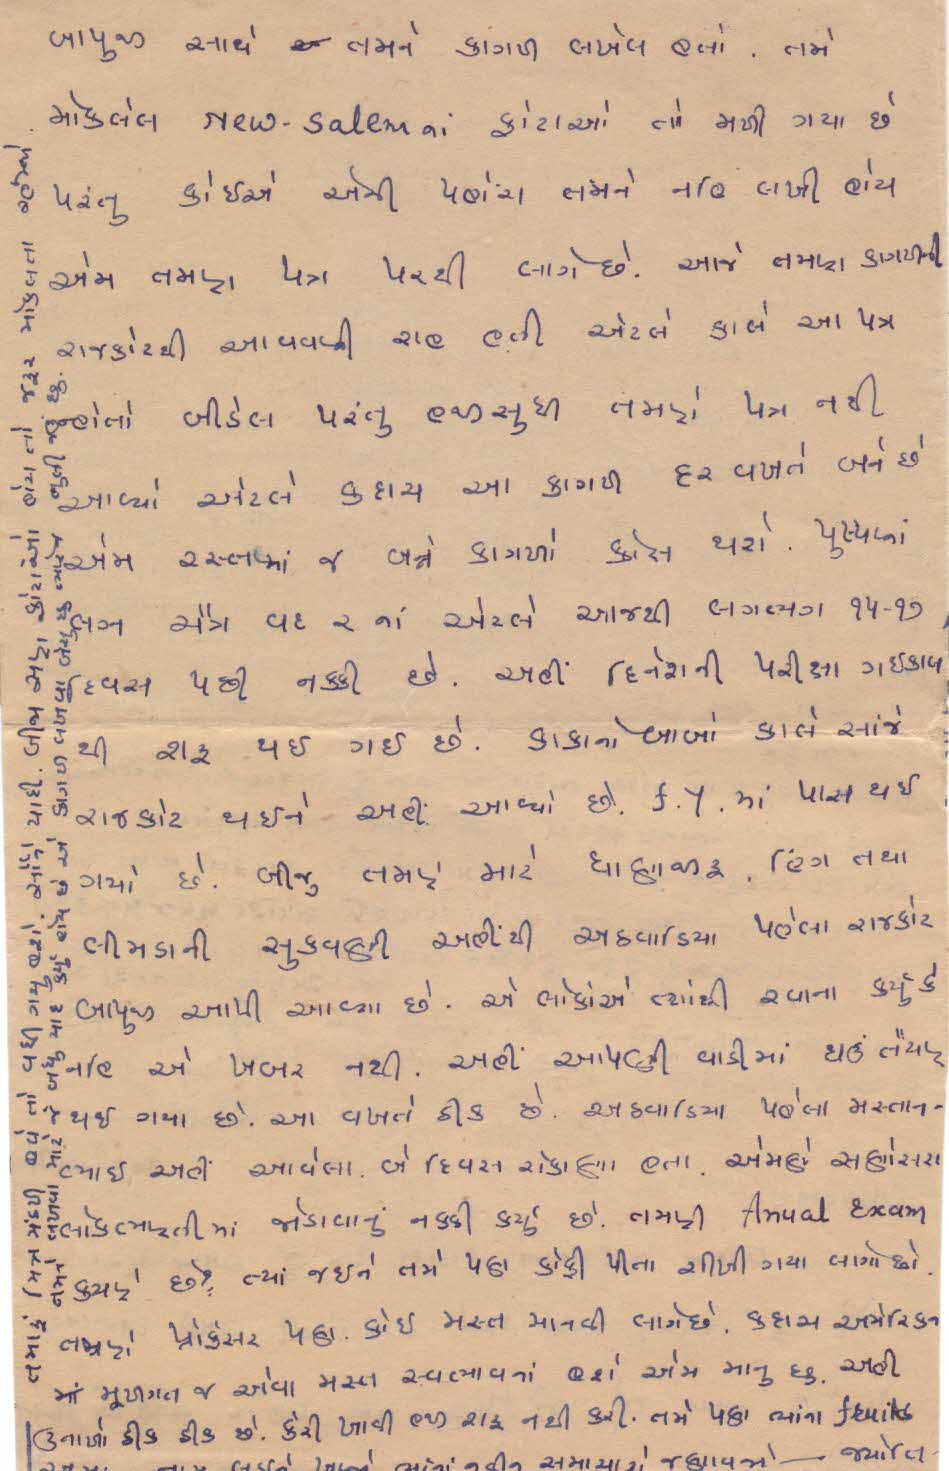 બાપુજી સાથે તમને કાગળ લખેલ હતો. તમે
મોકલેલ New-Salem નાં ફોટાઓ તો મળી ગયા છે
પરંતુ કોઈએ એની પહોંચ તમને નહિ લખી હોય
એમ તમારા પત્ર પરથી લાગે છે. આજે તમારા કાગળની
રાજકોટથી આવવાની રાહ હતી એટલે કાલે આ પત્ર
ન્હોતો બીડેલ પરંતુ હજીસુધી તમારો પત્ર નથી
આવ્યો એટલે કદાચ આ કાગળ દર વખતે બને છે
એમ રસ્તામાં જ બન્ને કાગળો ક્રોસ થશે. પુષ્પાનાં
લગ્ન ચૈત્ર વદ ૨ નાં એટલે આજથી લગભગ ૧૫-૧૭
દિવસ પછી નક્કી છે. અહીં દિનેશની પરીક્ષા ગઈકાલ
થી શરૂ થઈ ગઈ છે. કાકાનો બાબો કાલે સાંજે
રાજકોટ થઈને અહીં આવ્યો છે. F.Y. માં પાસ થઈ
ગયો છે. બીજુ તમારે માટે ધાણાજીરૂ, હિંગ તથા
લીમડાની સુકવણી અહીંથી અઠવાડિયા પહેલા રાજકોટ
બાપુજી આપી આવ્યા છે. એ લોકોએ ત્યાંથી રવાના કર્યું કે
નહિ એ ખબર નથી. અહીં આપણી વાડીમાં ઘઉં તૈયાર
થઈ ગયા છે. આ વખતે ઠીક છે. અઠવાડિયા પહેલા મસ્તાન-
ભાઈ અહીં આવેલા. બે દિવસ રોકાણા હતા. એમણે સણોસરા
લોકભારતીમાં જોડાવાનું નક્કી કર્યું છે. તમારી Anual Exam
ક્યારે છે? ત્યાં જઈને તમે પણ કોફી પીતા શીખી ગયા લાગો છો.
તમારો પ્રોફેસર પણ કોઈ મસ્ત માનવી લાગે છે. કદાચ અમેરિકન
માં મૂળગત જ એવા મસ્ત સ્વભાવનાં હશે એમ માનુ છુ. અહીં
ઉનાળો ઠીક ઠીક છે. કેરી ખાવી હજી શરૂ નથી કરી. તમે પણ ત્યાંના fruits
નવીન સમાચારો જણાવજો — જ્યોતિ
તમારૂં મિત્ર મંડળ હવે તો વધી ગયું હશે. સૌને યાદી. બીજા સારા ફોટાઓ હોય તો જરૂર મોકલતા રહેજો.
તમને લખવા માટે જે બધુ યાદ કર્યું હોય છે એ કાગળ લખવા બેસુ છું ત્યારે જ ભુલી જાઉં છું.